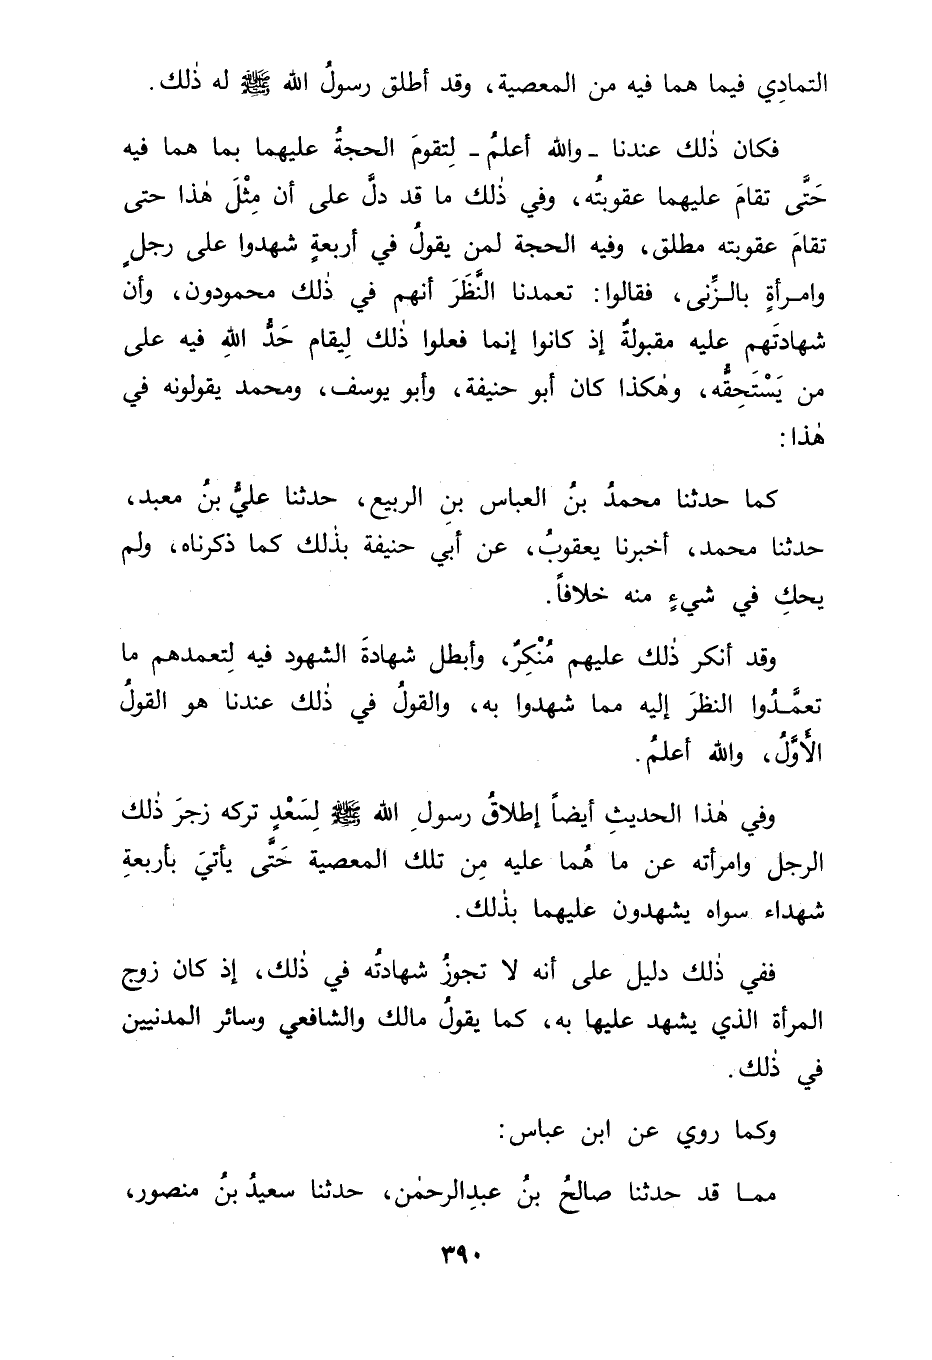 التمادِي فيما هما فيه من المعصية، وقد أطلق رسولُ الله ﷺ له ذٰلك.
فكان ذٰلك عندنا ـ والله أعلمُ ـ لِتقومَ الحجةُ عليهما بما هما فيه
حَتَّى تقامَ عليهما عقوبتُه، وفي ذٰلك ما قد دلَّ على أن مِثْلَ هٰذا حتى
تقامَ عقوبته مطلق، وفيه الحجة لمن يقولُ في أربعةٍ شهدوا على رجلٍ
وامرأةٍ بالزِّنى، فقالوا: تعمدنا النَّظَرَ أنهم في ذٰلك محمودون، وأن
شهادتَهم عليه مقبولةٌ إذ كانوا إنما فعلوا ذٰلك لِيقام حَدُّ اللهِ فيه على
من يَسْتَحِقُّه، وهٰكذا كان أبو حنيفة، وأبو يوسف، ومحمد يقولونه في
هٰذا:
كما حدثنا محمدُ بنُ العباس بنِ الربيع، حدثنا عليُّ بنُ معبد،
حدثنا محمد، أخبرنا يعقوبُ، عن أبي حنيفة بذٰلك كما ذكرناه، ولم
يحكِ في شيءٍ منه خلافاً.
وقد أنكر ذٰلك عليهم مُنْكِرٌ، وأبطل شهادةَ الشهود فيه لِتعمدهم ما
تعمَّدُوا النظرَ إليه مما شهدوا به، والقولُ في ذٰلك عندنا هو القولُ
الأَوَّلُ، والله أعلمُ.
وفي هٰذا الحديثِ أيضاً إطلاقُ رسولِ الله ﷺ لِسَعْدٍ تركه زجرَ ذٰلك
الرجل وامرأته عن ما هُما عليه مِن تلك المعصية حَتَّى يأتيَ بأربعةِ
شهداء سواه يشهدون عليهما بذٰلك.
ففي ذٰلك دليل على أنه لا تجوزُ شهادتُه في ذٰلك، إذ كان زوج
المرأة الذي يشهد عليها به، كما يقولُ مالك والشافعي وسائر المدنيين
في ذٰلك.
وكما روي عن ابن عباس:
مما قد حدثنا صالحُ بنُ عبدِالرحمٰن، حدثنا سعيدُ بنُ منصور،
٣٩٠